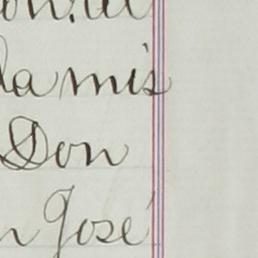 la mis
Don
n José